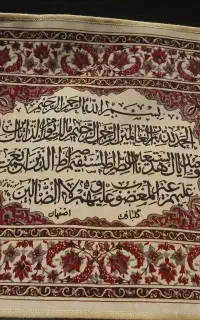 بسم الله الرحمن الرحيم
الحمد لله رب العالمين الرحمن الرحيم مالك يوم الدين اياك
نعبد و اياك نستعين اهدنا الصراط المستقيم صراط الذين انعمت
عليهم غير المغضوب عليهم ولا الضالين
اصفهان